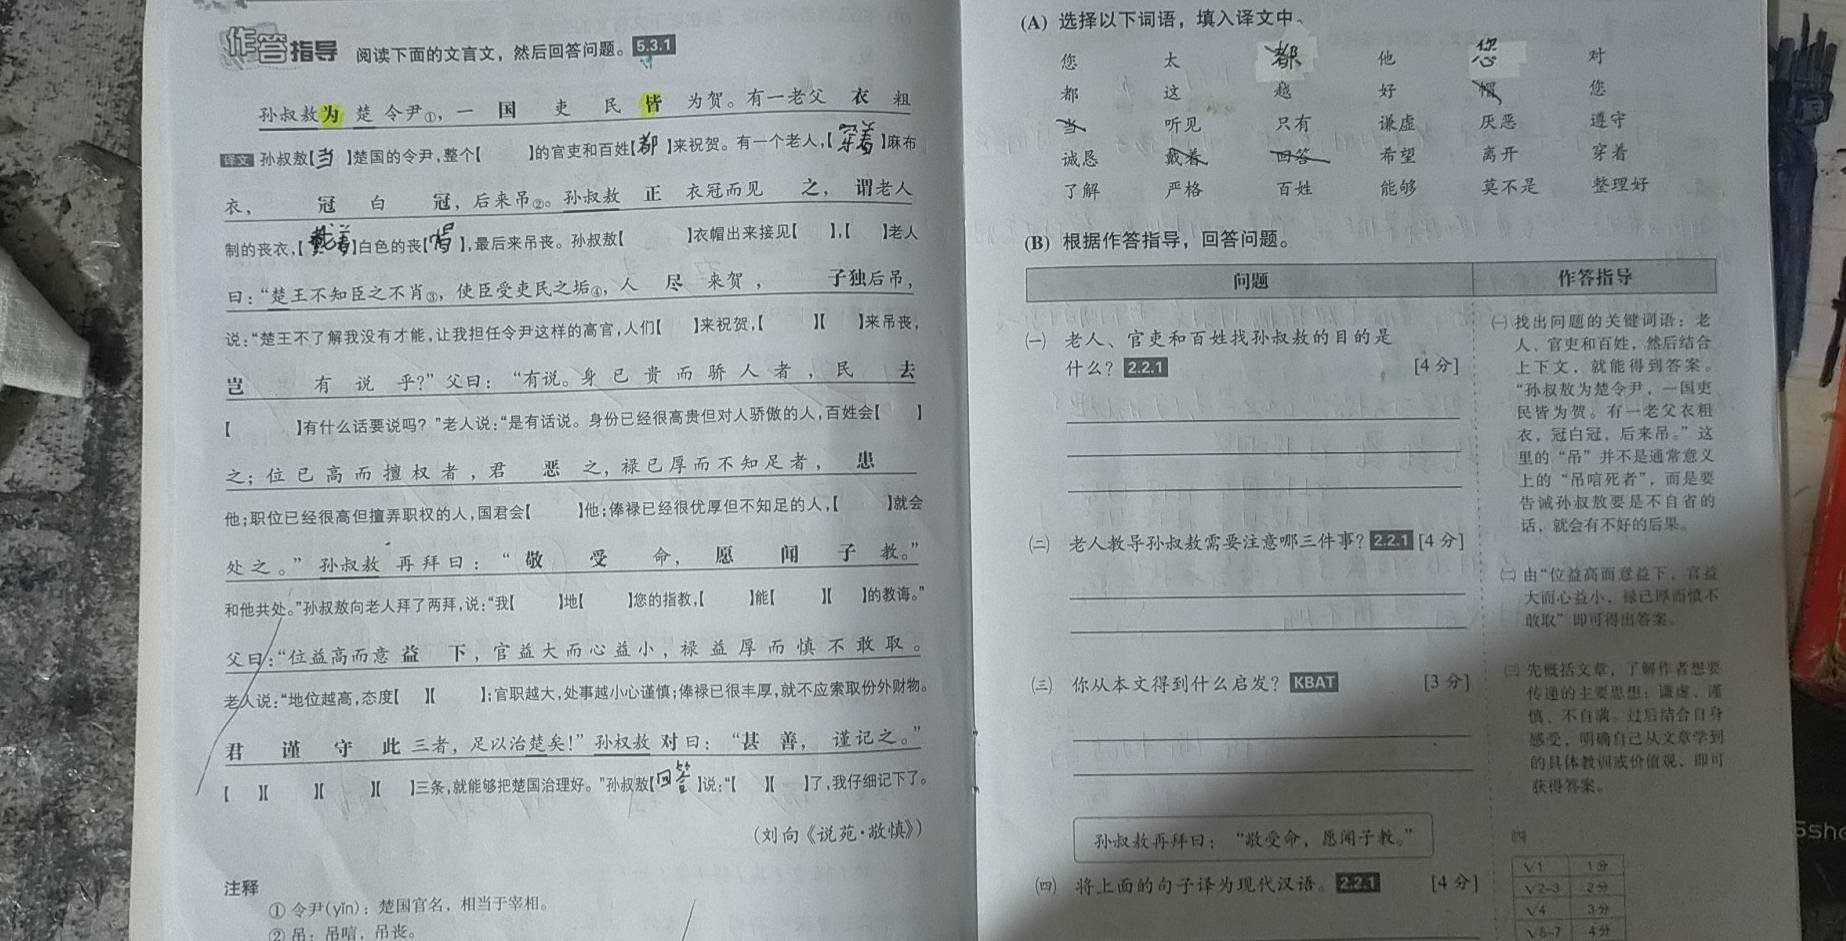 作答指导 阅读下面的文言文，然后回答问题。5.3.1
孙叔敖为楚令尹①，一国吏民皆为贺。有一老父衣粗
译文 孙叔敖【当】楚国的令尹,整个【 】的官吏和百姓【都】来祝贺。有一个老人,【穿着】麻布
衣，冠白冠，后来吊②。孙叔敖正衣冠而见之，谓老人
制的丧衣,【戴着】白色的丧【帽】,最后来吊丧。孙叔敖【 】衣帽出来接见【 】,【 】老人
曰：“楚王不知臣之不肖③，使臣受吏民之垢④，人尽来贺，子独后吊，
说:“楚王不了解我没有才能,让我担任令尹这样的高官,人们【 】来祝贺,【 】【 】来吊丧,
岂有说乎？”父曰：“有说。身已贵而骄人者，民去
【 】有什么话要说吗？”老人说:“是有话说。身份已经很高贵但对人骄傲的人,百姓会【 】
之；位已高而擅权者，君恶之，禄已厚而不知足者，患
他;职位已经很高但擅弄职权的人,国君会【 】他;俸禄已经很优厚但不知足的人,【 】就会
处之。”孙叔敖再拜曰：“敬受命，愿闻子教。”
和他共处。”孙叔敖向老人拜了两拜,说:“我【 】地【 】您的指教,【 】能【 】【 】的教诲。”
父曰：“位益高而意益下，官益大而心益小，禄益厚而慎不敢取。
老人说:“地位越高,态度【 】【 】;官职越大,处事越小心谨慎;俸禄已很丰厚,就不应索取份外财物。
君谨守此三者，足以治楚矣！”孙叔敖对曰：“甚善，谨记之。”
【 】【 】【 】【 】三条,就能够把楚国治理好。”孙叔敖【回答】说:“【 】【 】了,我仔细记下了。
(刘向《说苑·敬慎》)
注释
① 令尹(yǐn)：楚国官名，相当于宰相。
② 吊：吊唁，吊丧。
(A) 选择以下词语，填入译文中。
您 太 都 他 您 对
都 这 越 好 帽 您
当 听见 只有 谦虚 厌恶 遵守
诚恳 戴着 回答 希望 离开 穿着
了解 严格 百姓 能够 莫不是 整理好
(B) 根据作答指导，回答问题。
问题 作答指导
㈠ 老人、官吏和百姓找孙叔敖的目的是
什么？2.2.1 [4 分]
㈡ 老人教导孙叔敖需要注意哪三件事？2.2.1 [4 分]
㈢ 你从本文得到什么启发？KBAT [3 分]
孙叔敖再拜曰：“敬受命，愿闻子教。”
㈣ 将上面的句子译为现代汉语。2.2.1 [4 分]
㈠ 找出问题的关键词语：老
人、官吏和百姓，然后结合
上下文，就能得到答案。
“孙叔敖为楚令尹，一国吏
民皆为贺。有一老父衣粗
衣，冠白冠，后来吊。”这
里的“吊”并不是通常意义
上的“吊唁死者”，而是要
告诫孙叔敖要是不自省的
话，就会有不好的后果。
㈡ 由“位益高而意益下，官益
大而心益小，禄已厚而慎不
敢取”即可得出答案。
㈢ 先概括文章，了解作者想要
传递的主要思想：谦虚、谨
慎、不自满。过后结合自身
感受，明确自己从文章学到
的具体教训或价值观，即可
获得答案。
四
√1 1分
√2-3 2分
√4 3分
√5-7 4分